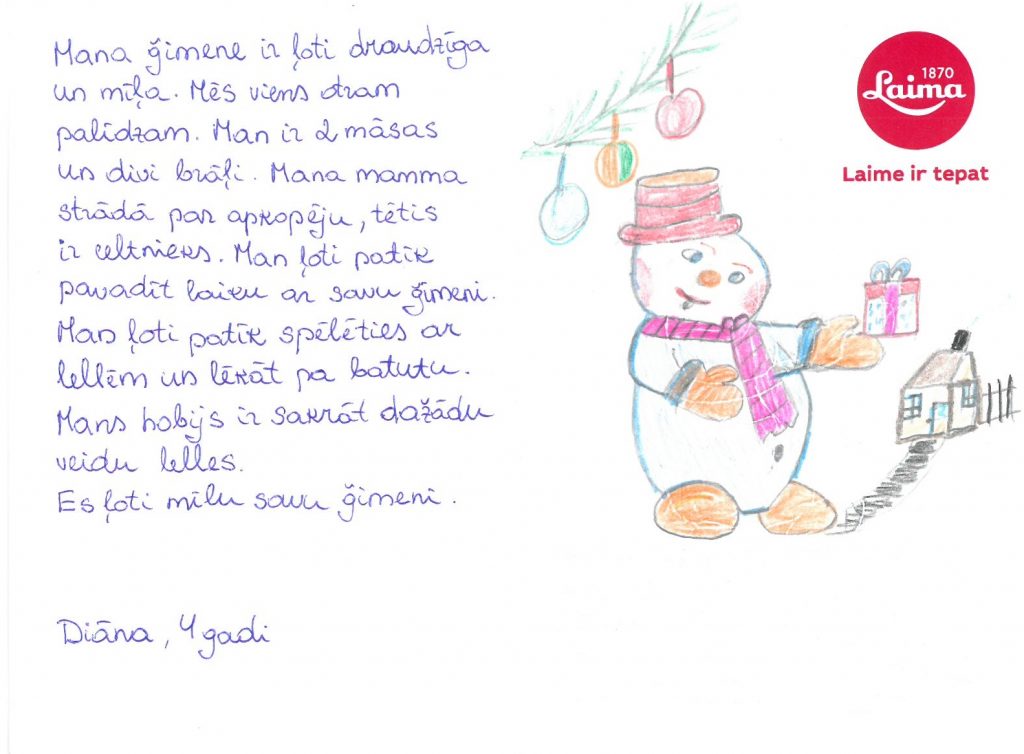 Mana ģimene ir ļoti draudzīga
un mīļa. Mēs viens otram
palīdzam. Man ir 2 māsas
un divi brāļi. Mana mamma
strādā par apkopēju, tētis
ir celtnieks. Man ļoti patīk
pavadīt laiku ar savu ģimeni.
Man ļoti patīk spēlēties ar
lellēm un lēkāt pa batutu.
Mans hobijs ir sakrāt dažādu
veidu lelles.
Es ļoti mīlu savu ģimeni.
Diāna, 4 gadi
1870
Laima
Laime ir tepat